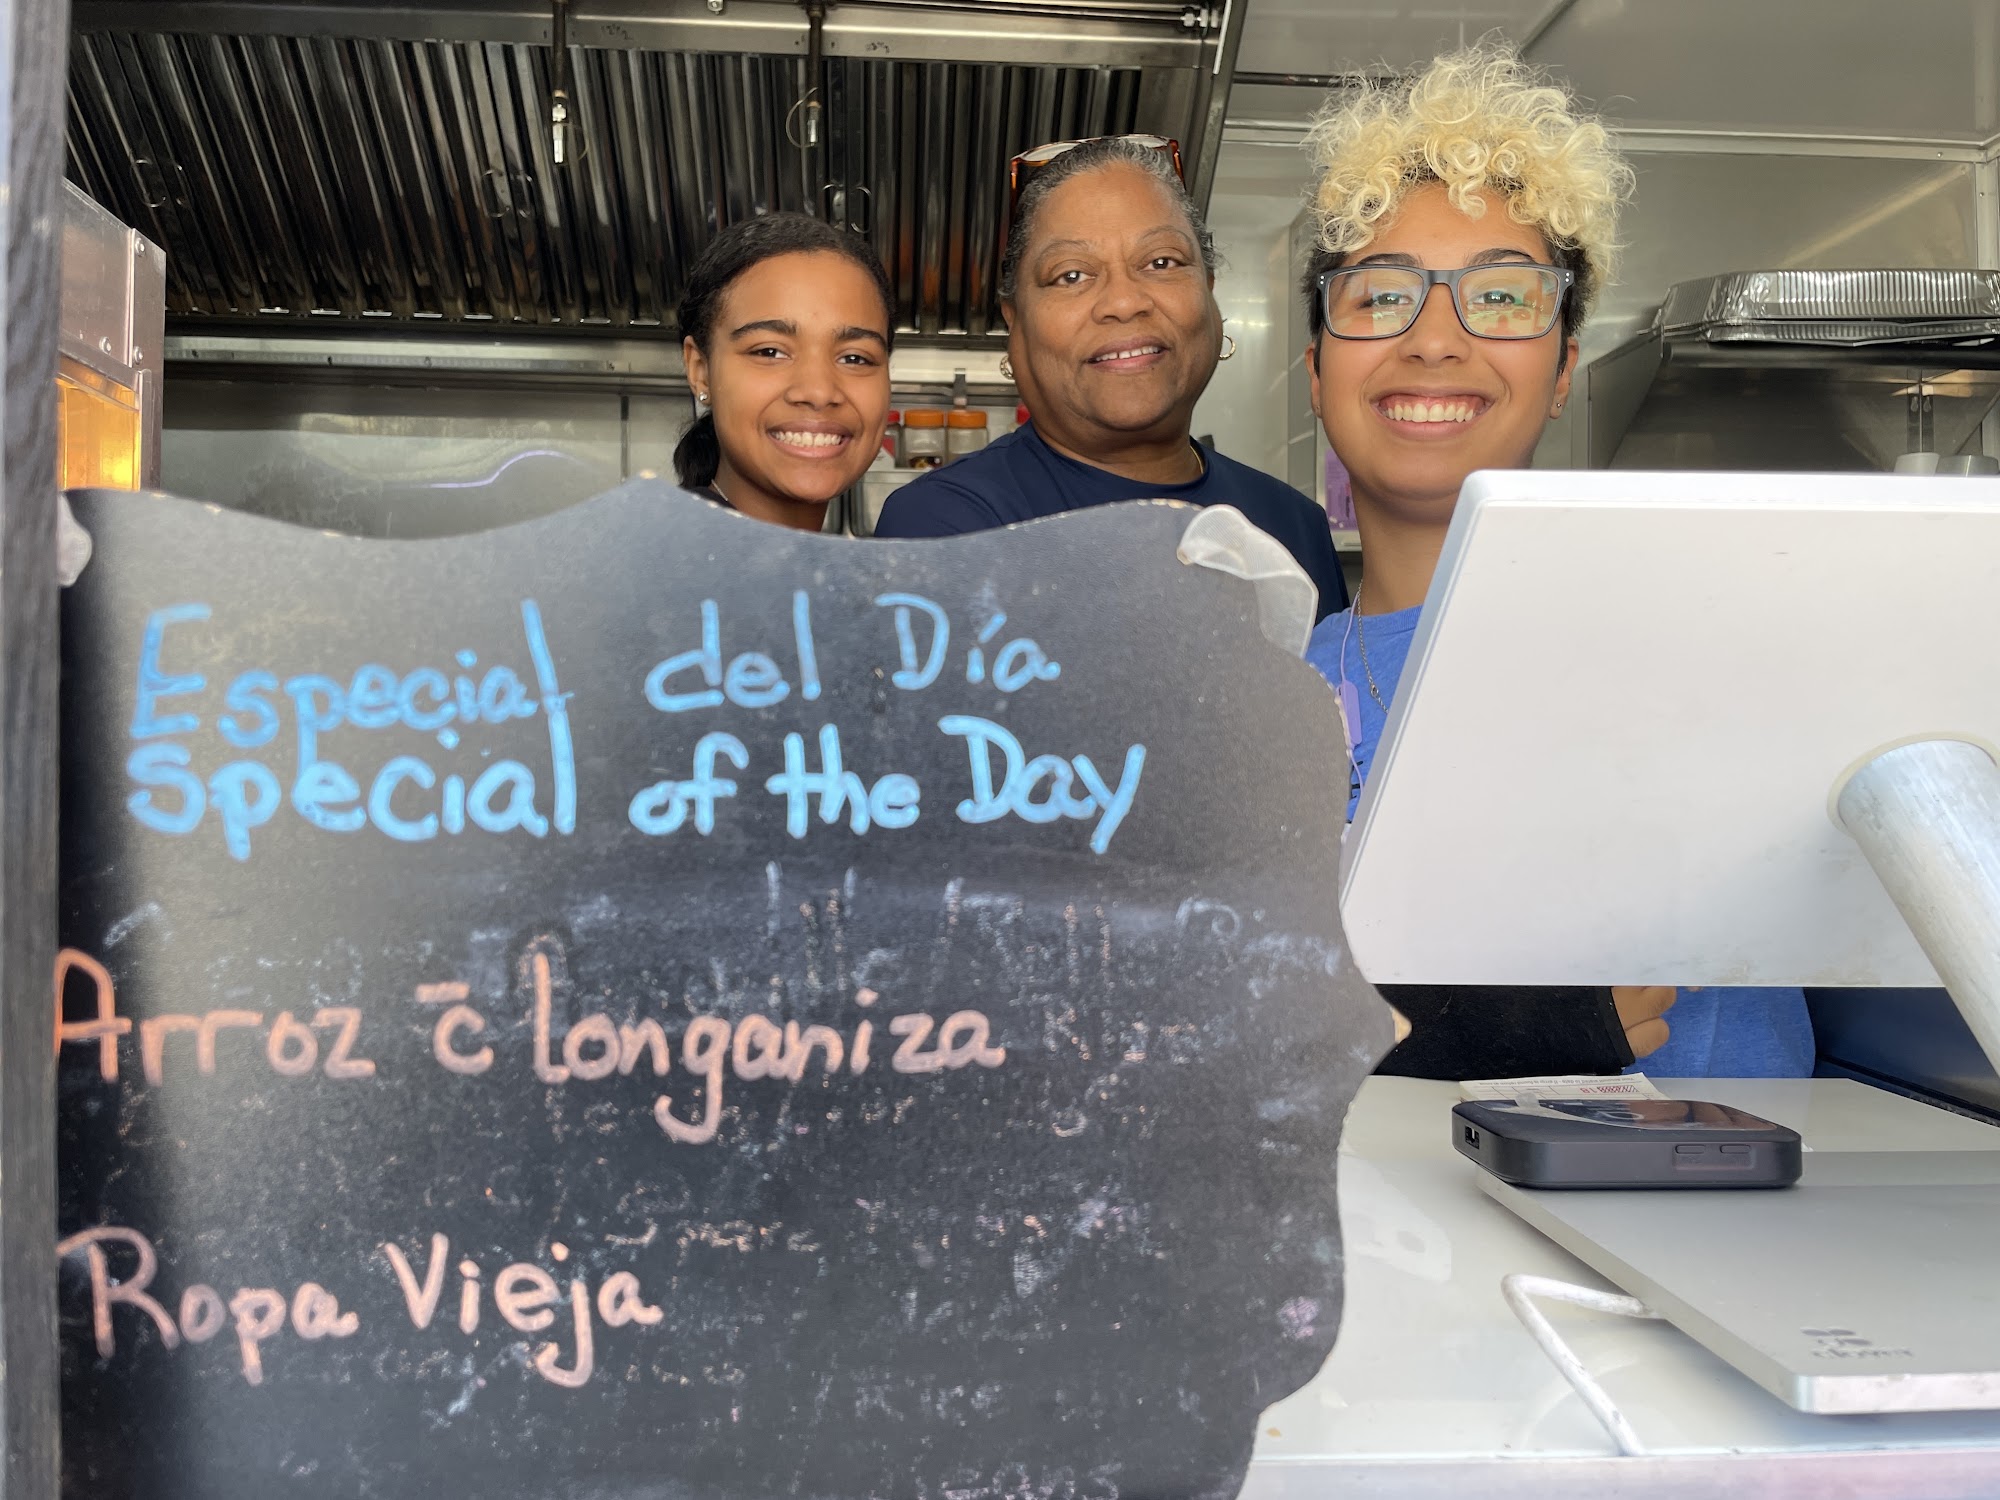 Especial del Día
Special of the Day
Arroz c̄ longaniza
Ropa Vieja
clover